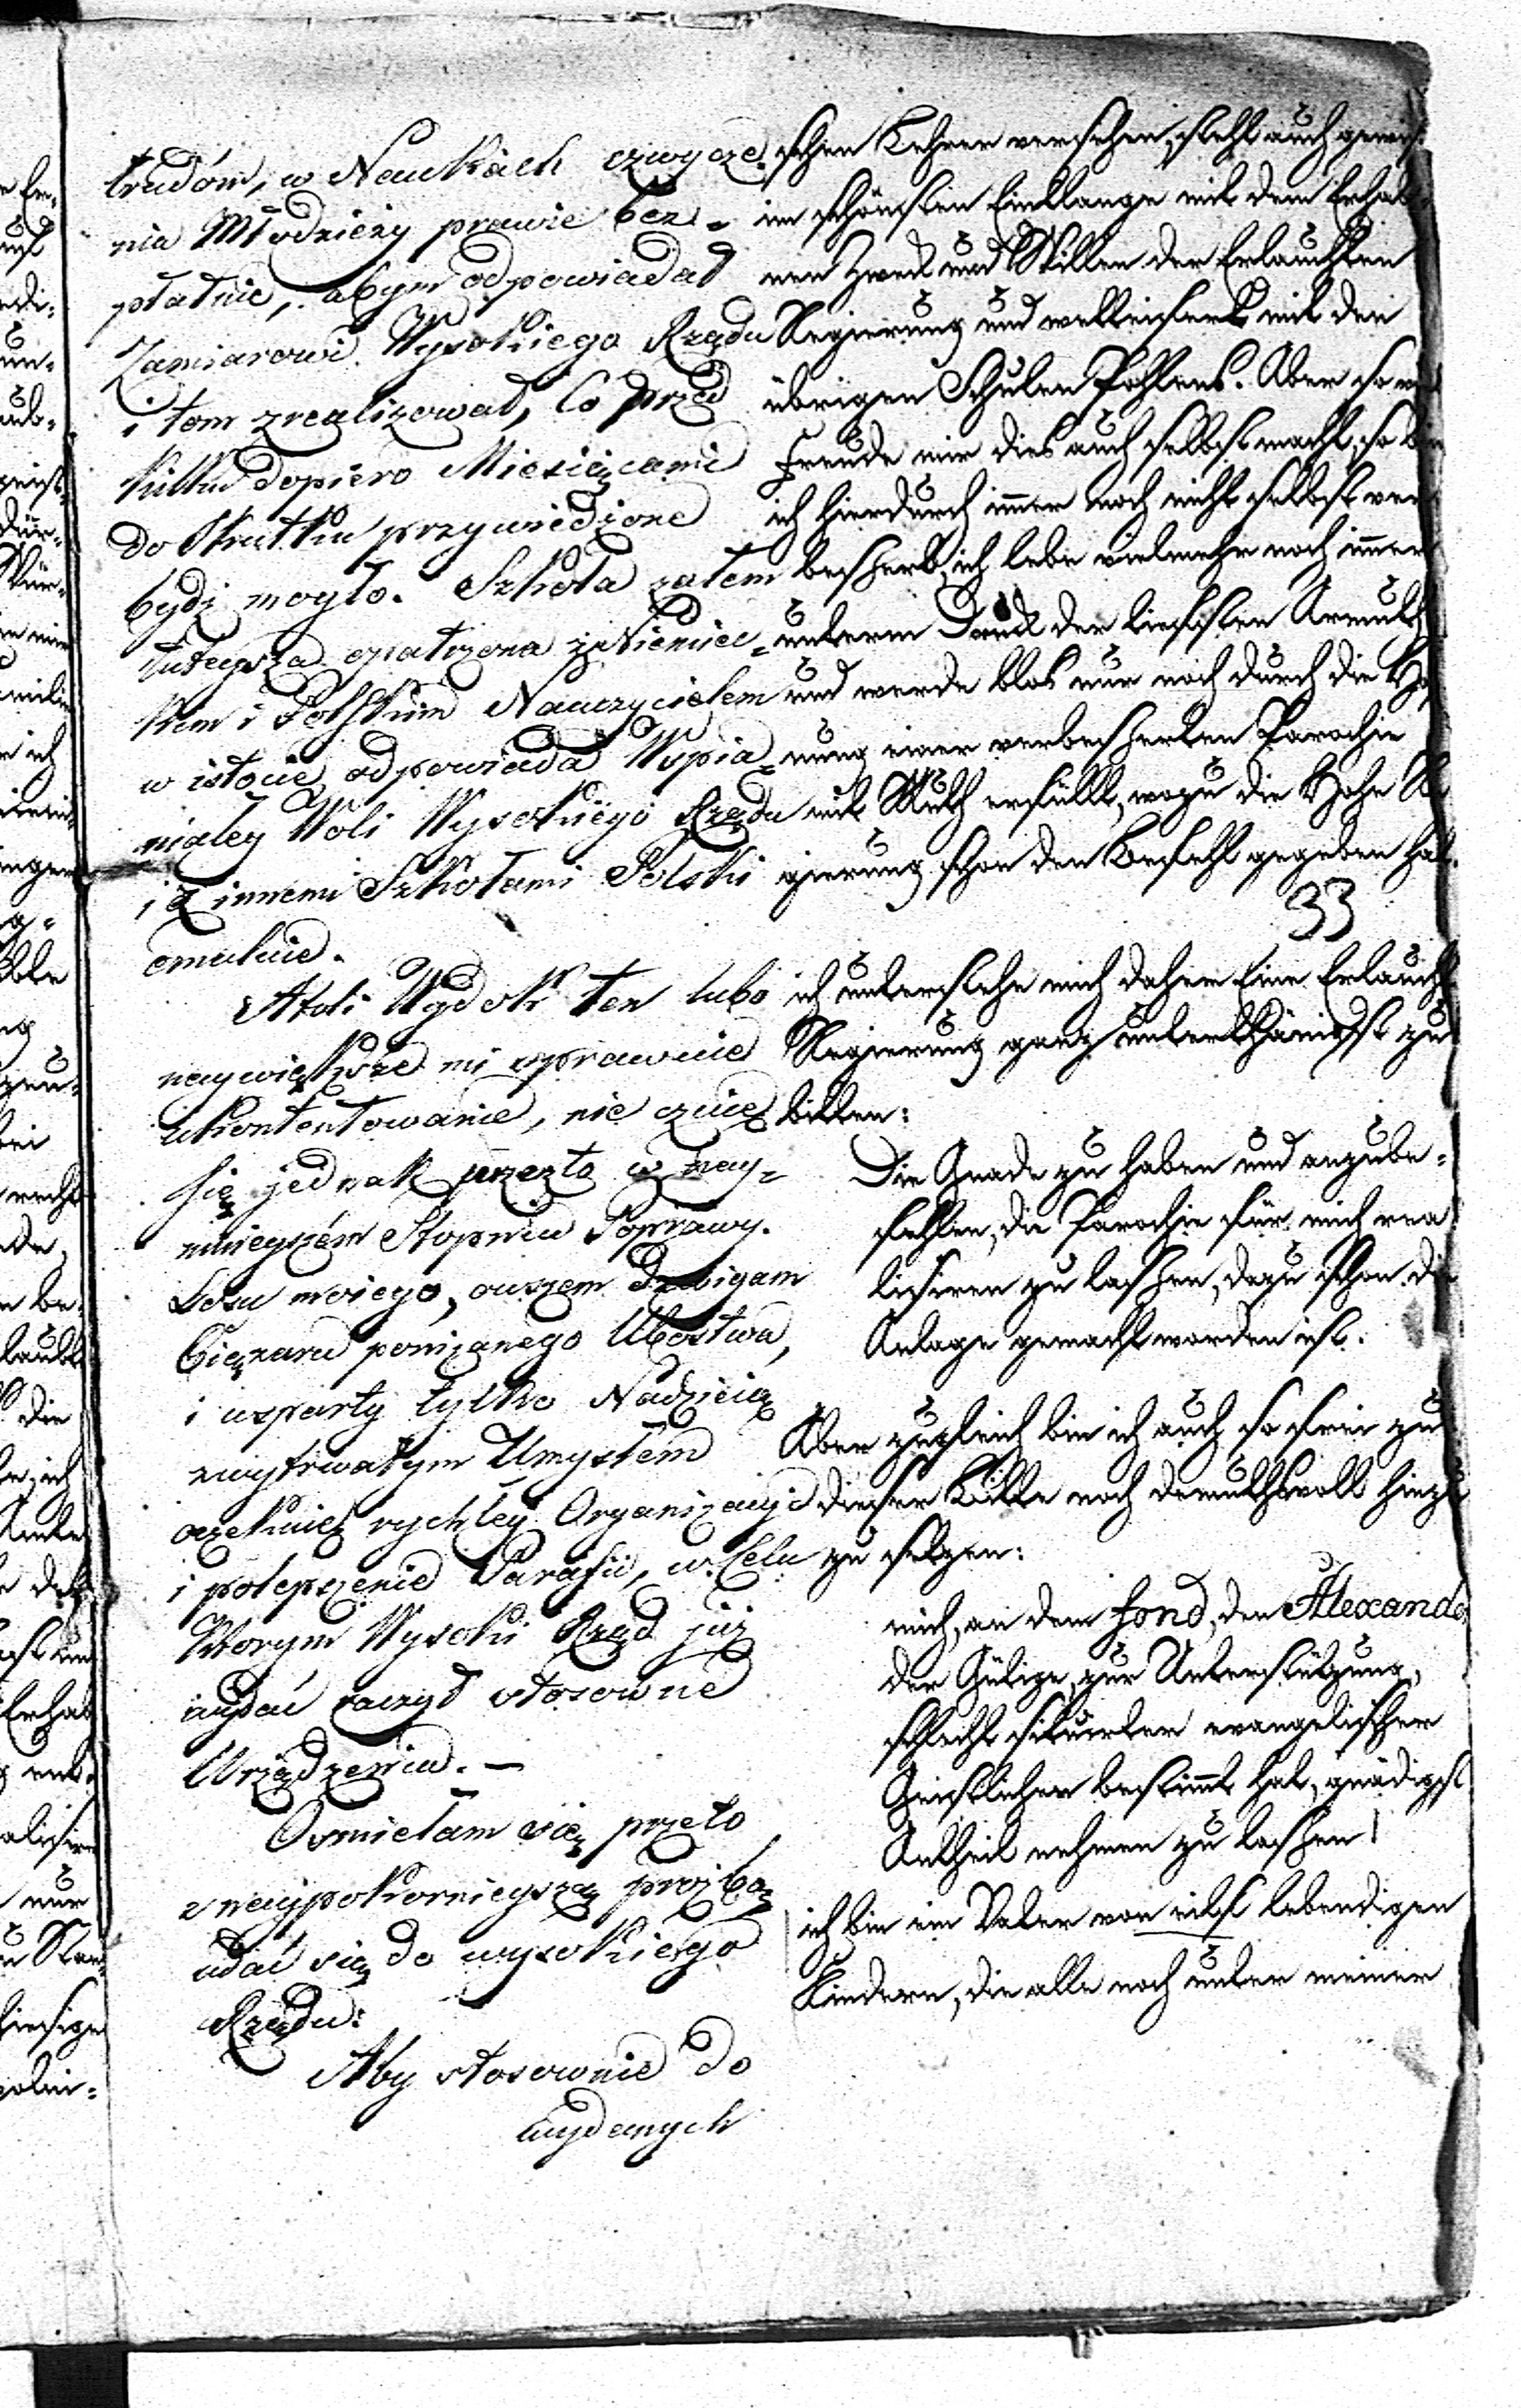 trudóm, w Naukach czwycze-
nia Młodzieży prawie bez-
płatnie, abym odpowiadał
Zamiarowi Wysokiego Rządu
i tom zrealizował, co przed
kilku dopiero Miesiącami
do Skutku przywiedzione
bydź mogło. Szkoła zatem
tuteysza opatrzona z Niemiec-
kim i Polskim Nauczycielem
w istocie odpowiada Wspia-
niałey Woli Wysokiego Rządu
i z innemi Szkołami Polski
emuluie.
Atoli Widok ten lubo
naywiększe mi sprawuie
ukontentowanie, nie czuię
się jednak przezto w nay-
mnieyszém Stopniu Poprawy
Losu moiego, owszem dzwigam
Cięzaru poniżanego Ubóstwa,
i wsparty tylko Nadzieią
zwytrwałym Umysłem
oczekuię rychłey Organizacyi
i polepszenie Parafii, w Celu
którym Wysoki Rząd już
wydać raczył stosowne
Urządzenia. —
Osmielam się przeto
z naypokornieyszą prozbą
udać się do wysokiego
Rządu:
Aby stosownie do
wydanych
schen Lehrer versehen, steht auch gewiß
im schönsten Einklange mit dem Erhabe-
nen Zweck und Willen der Erlauchten
Regierung und wetteifert mit den
übrigen Schulen Pohlens. Aber so viel
Freude mir dies auch selbst macht, so bin
ich hierdurch immer noch nicht selbst ver-
bessert, ich lebe vielmehr noch immer
unterm Druck der tiefsten Armuth
und werde blos nur noch durch die Hof-
nung einer verbesserten Parochie
mit Muth erfüllt, wozu die Hohe Re-
gierung schon den Befehl gegeben hat.
33
ich unterstehe mich daher Eine Erlauchte
Regierung ganz unterthänigst zu
bitten:
Die Gnade zu haben und anzube-
fehlen, die Parochie für mich rea-
lisiren zu lassen, dazu schon die
Anlage gemacht worden ist.
Aber zugleich bin ich auch so frei zu
dieser Bitte noch demuthsvoll hinzu
zu setzen:
mich, an dem Fond, den Alexander
der Gütige, zur Unterstützung,
schlecht situirter evangelischer
Geistlichen bestimmt hat, gnädigst
Antheil nehmen zu lassen!
ich bin ein Vater von eilf lebendigen
Kindern, die alle noch unter meiner